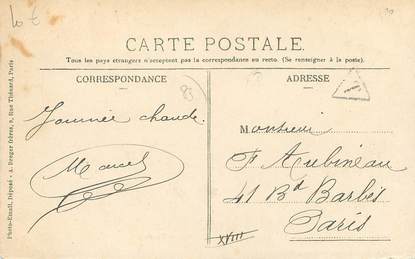 10 €
CARTE POSTALE.
Tous les pays étrangers n'acceptent pas la correspondance au recto. (Se renseigner à la poste.)
CORRESPONDANCE
ADRESSE
83
T
Journée chaude.
Marcel
Monsieur
F Aubineau
41 Bd Barbès
Paris
XVIII
Photo-Émail, Déposé - A. Breger frères, 9, Rue Thénard, Paris